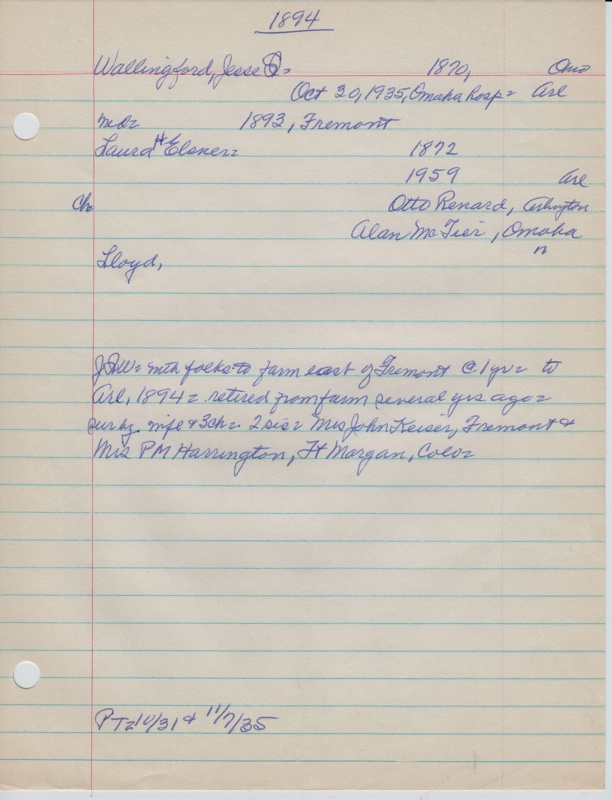 1894
Wallingford, Jesse = 1870, Ohio
Oct 30, 1935, Omaha Hosp = Arl
m D = 1893, Fremont
Laura H Elsner = 1872
1959 Arl
Ch Otto Renard, Arlington
Alan McTier, Omaha
n
Lloyd,
JW = with folks to farm east of Fremont @ 1 yr = to
Arl, 1894 = retired from farm several yrs ago =
sur by wife & 3 ch = 2 sis = Mrs John Keiser, Fremont &
Mrs PM Harrington, Ft Morgan, Colo =
PT = 10/31 & 11/7/35